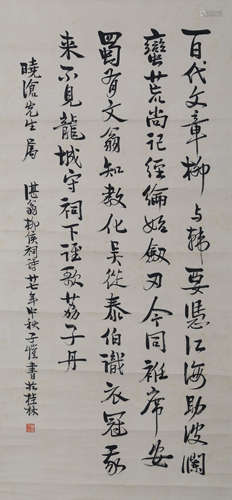 百代文章柳与韩要凭江海助波澜
蛮荒尚记经纶始剑刃今同衽席安
蜀有文翁知教化吴从泰伯识衣冠我
来不见龙城守祠下谨歌荔子丹
晓沧先生属 湛翁柳侯祠诗廿七年中秋子恺书于桂林